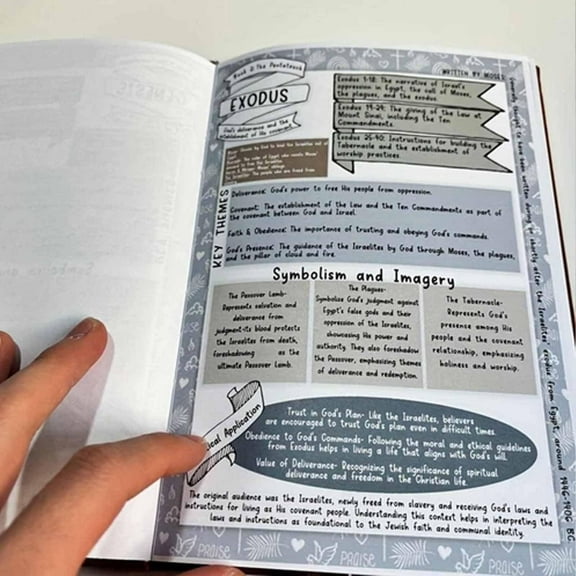 Book 2: The Pentateuch
WRITTEN BY MOSES
EXODUS
God's deliverance and the
establishment of His covenant.
Exodus 1-18: The narrative of Israel's
oppression in Egypt, the call of Moses,
the plagues, and the exodus.
Exodus 19-24: The giving of the Law at
Mount Sinai, including the Ten
Commandments.
Exodus 25-40: Instructions for building the
Tabernacle and the establishment of
worship practices.
KEY THEMES
Deliverance: God's power to free His people from oppression.
Covenant: The establishment of the Law and the Ten Commandments as part of
the covenant between God and Israel.
Faith & Obedience: The importance of trusting and obeying God's commands.
God's Presence: The guidance of the Israelites by God through Moses, the plagues,
and the pillar of cloud and fire.
Symbolism and Imagery
The Passover Lamb-
Represents salvation and
deliverance from
judgment-its blood protects
the Israelites from death,
foreshadowing as the
ultimate Passover Lamb.
The Plagues-
Symbolize God's judgment against
Egypt's false gods and their
oppression of the Israelites,
showcasing His power and
authority. They also foreshadow
the Passover, emphasizing themes
of deliverance and redemption.
The Tabernacle-
Represents God's
presence among His
people and the covenant
relationship, emphasizing
holiness and worship.
ical Application
Trust in God's Plan- Like the Israelites, believers
are encouraged to trust God's plan even in difficult times.
Obedience to God's Commands- Following the moral and ethical guidelines
from Exodus helps in living a life that aligns with God's will.
Value of Deliverance- Recognizing the significance of spiritual
deliverance and freedom in the Christian life.
The original audience was the Israelites, newly freed from slavery and receiving God's laws and
instructions for living as His covenant people. Understanding this context helps in interpreting the
laws and instructions as foundational to the Jewish faith and communal identity.
PRAISE
PRAISE
PRAISE